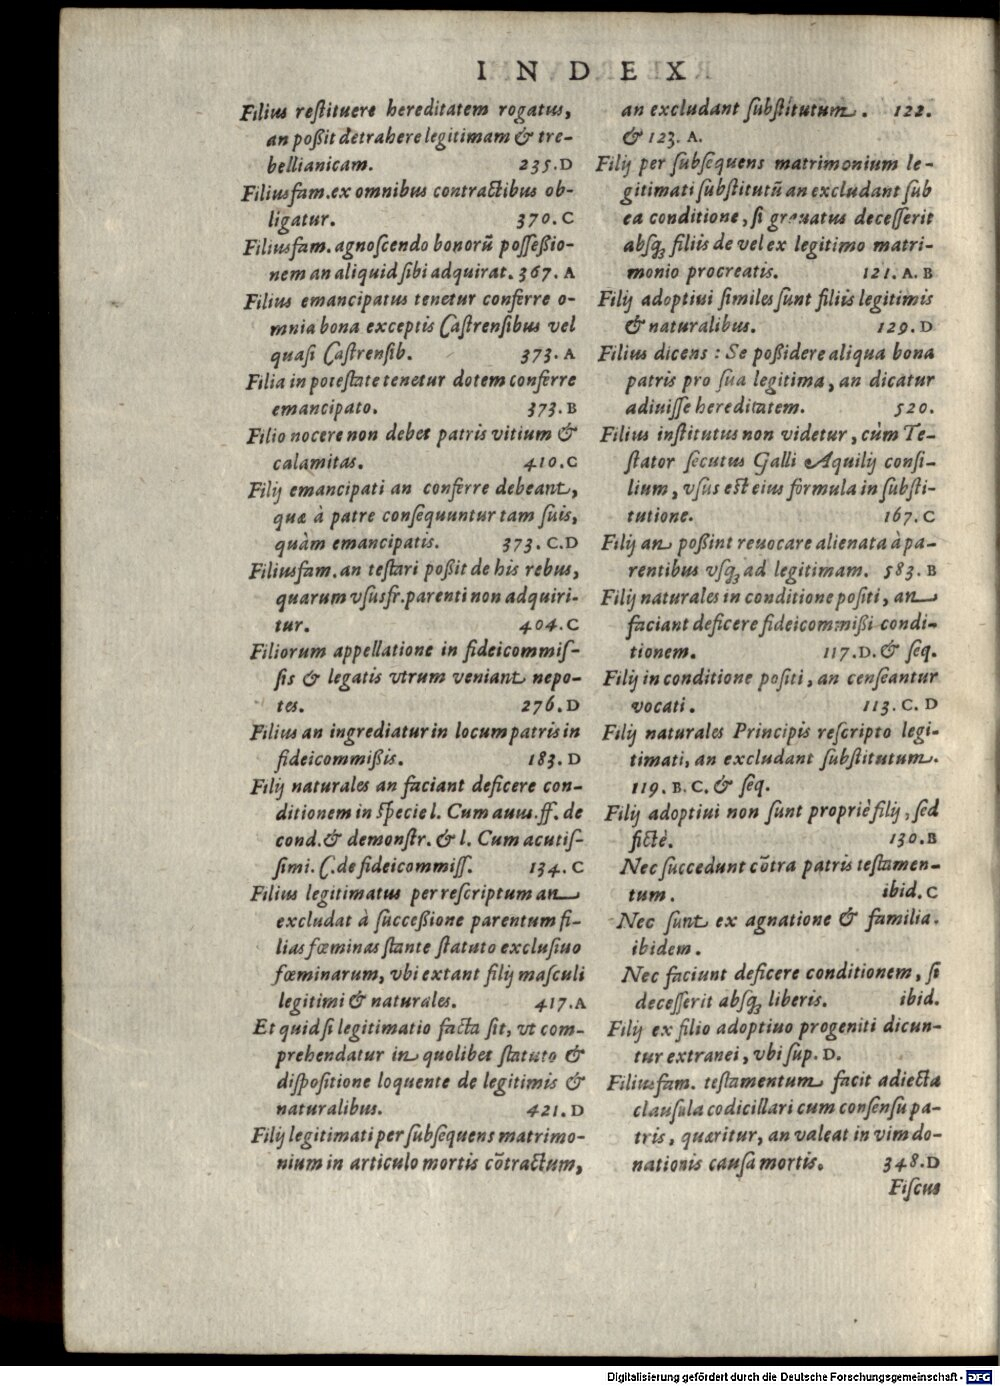 INDEX
Filius reſtituere hereditatem rogatus,
an poßit detrahere legitimam & tre-
bellianicam. 235.D
Filiusfam. ex omnibus contractibus ob-
ligatur. 370.C
Filiusfam. agnoſcendo bonorũ poſſeßio-
nem an aliquid ſibi adquirat. 367.A
Filius emancipatus tenetur conferre o-
mnia bona exceptis Caſtrenſibus vel
quaſi Caſtrenſib. 373.A
Filia in poteſtate tenetur dotem conferre
emancipato. 373.B
Filio nocere non debet patris vitium &
calamitas. 410.C
Filij emancipati an conferre debeant,
quæ à patre conſequuntur tam ſuis,
quàm emancipatis. 373.C.D
Filiusfam. an teſtari poßit de his rebus,
quarum vſusfr. parenti non adquiri-
tur. 404.C
Filiorum appellatione in fideicommiſ-
ſis & legatis vtrum veniant nepo-
tes. 276.D
Filius an ingrediatur in locum patris in
fideicommißis. 183.D
Filij naturales an faciant deficere con-
ditionem in ſpecie l. Cum auus. ff. de
cond. & demonſtr. & l. Cum acutiſ-
ſimi. C. de fideicommiſſ. 134.C
Filius legitimatus per reſcriptum an
excludat à ſucceßione parentum fi-
lias fœminas ſtante ſtatuto excluſiuo
fœminarum, vbi extant filij maſculi
legitimi & naturales. 417.A
Et quid ſi legitimatio facta ſit, vt com-
prehendatur in quolibet ſtatuto &
diſpoſitione loquente de legitimis &
naturalibus. 421.D
Filij legitimati per ſubſequens matrimo-
nium in articulo mortis cõtractum,
an excludant ſubſtitutum. 122.
& 123. A.
Filij per ſubſequens matrimonium le-
gitimati ſubſtitutũ an excludant ſub
ea conditione, ſi grauatus deceſſerit
abſq; filiis de vel ex legitimo matri-
monio procreatis. 121.A.B
Filij adoptiui ſimiles ſunt filiis legitimis
& naturalibus. 129.D
Filius dicens: Se poßidere aliqua bona
patris pro ſua legitima, an dicatur
adiuiſſe hereditatem. 520.
Filius inſtitutus non videtur, cùm Te-
ſtator ſecutus Galli Aquilij conſi-
lium, vſus eſt eius formula in ſubſti-
tutione. 167.C
Filij an poßint reuocare alienata à pa-
rentibus vſq; ad legitimam. 583.B
Filij naturales in conditione poſiti, an
faciant deficere fideicommißi condi-
tionem. 117.D. & ſeq.
Filij in conditione poſiti, an cenſeantur
vocati. 113.C.D
Filij naturales Principis reſcripto legi-
timati, an excludant ſubſtitutum.
119. B. C. & ſeq.
Filij adoptiui non ſunt propriè filij, ſed
fictè. 130.B
Nec ſuccedunt cõtra patris teſtamen-
tum. ibid. C
Nec ſunt ex agnatione & familia.
ibidem.
Nec faciunt deficere conditionem, ſi
deceſſerit abſq; liberis. ibid.
Filij ex filio adoptiuo progeniti dicun-
tur extranei, vbi ſup. D.
Filiusfam. teſtamentum facit adiecta
clauſula codicillari cum conſenſu pa-
tris, quæritur, an valeat in vim do-
nationis cauſa mortis. 348.D
Fiſcus
Digitalisierung gefördert durch die Deutsche Forschungsgemeinschaft - DFG